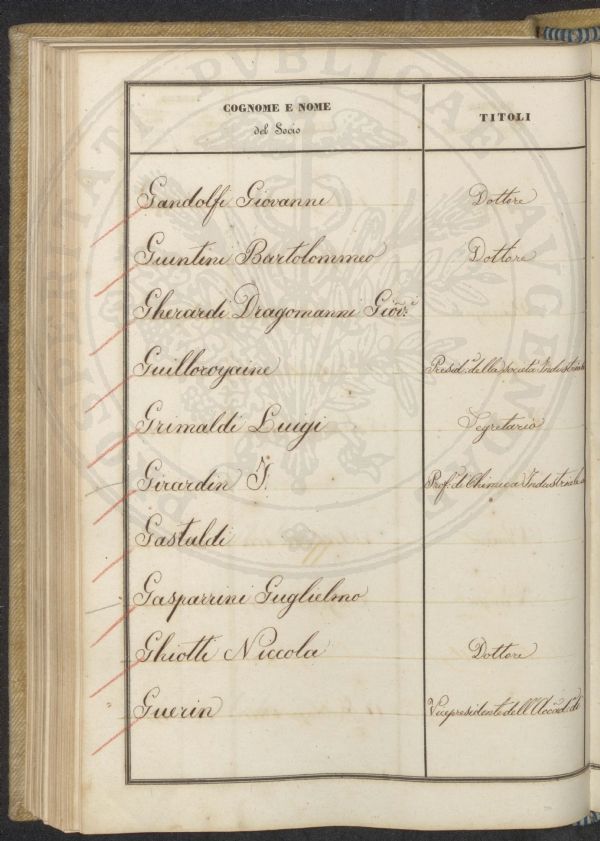 COGNOME E NOME
del Socio
TITOLI
Gandolfi Giovanni Dottore
Guintini Bartolommeo Dottore
Gherardi Dragomanni Giov.
Guilloroyaine Presid.e della Società Industriale
Grimaldi Luigi Segretario
Girardin J. Prof. di Chimica Industriale
Gastaldi
Gasparrini Guglielmo
Ghiotti Niccola Dottore
Guerin Vicepresidente dell'Accad. di
PROSPERITATI PUBLICAE AUGENDAE